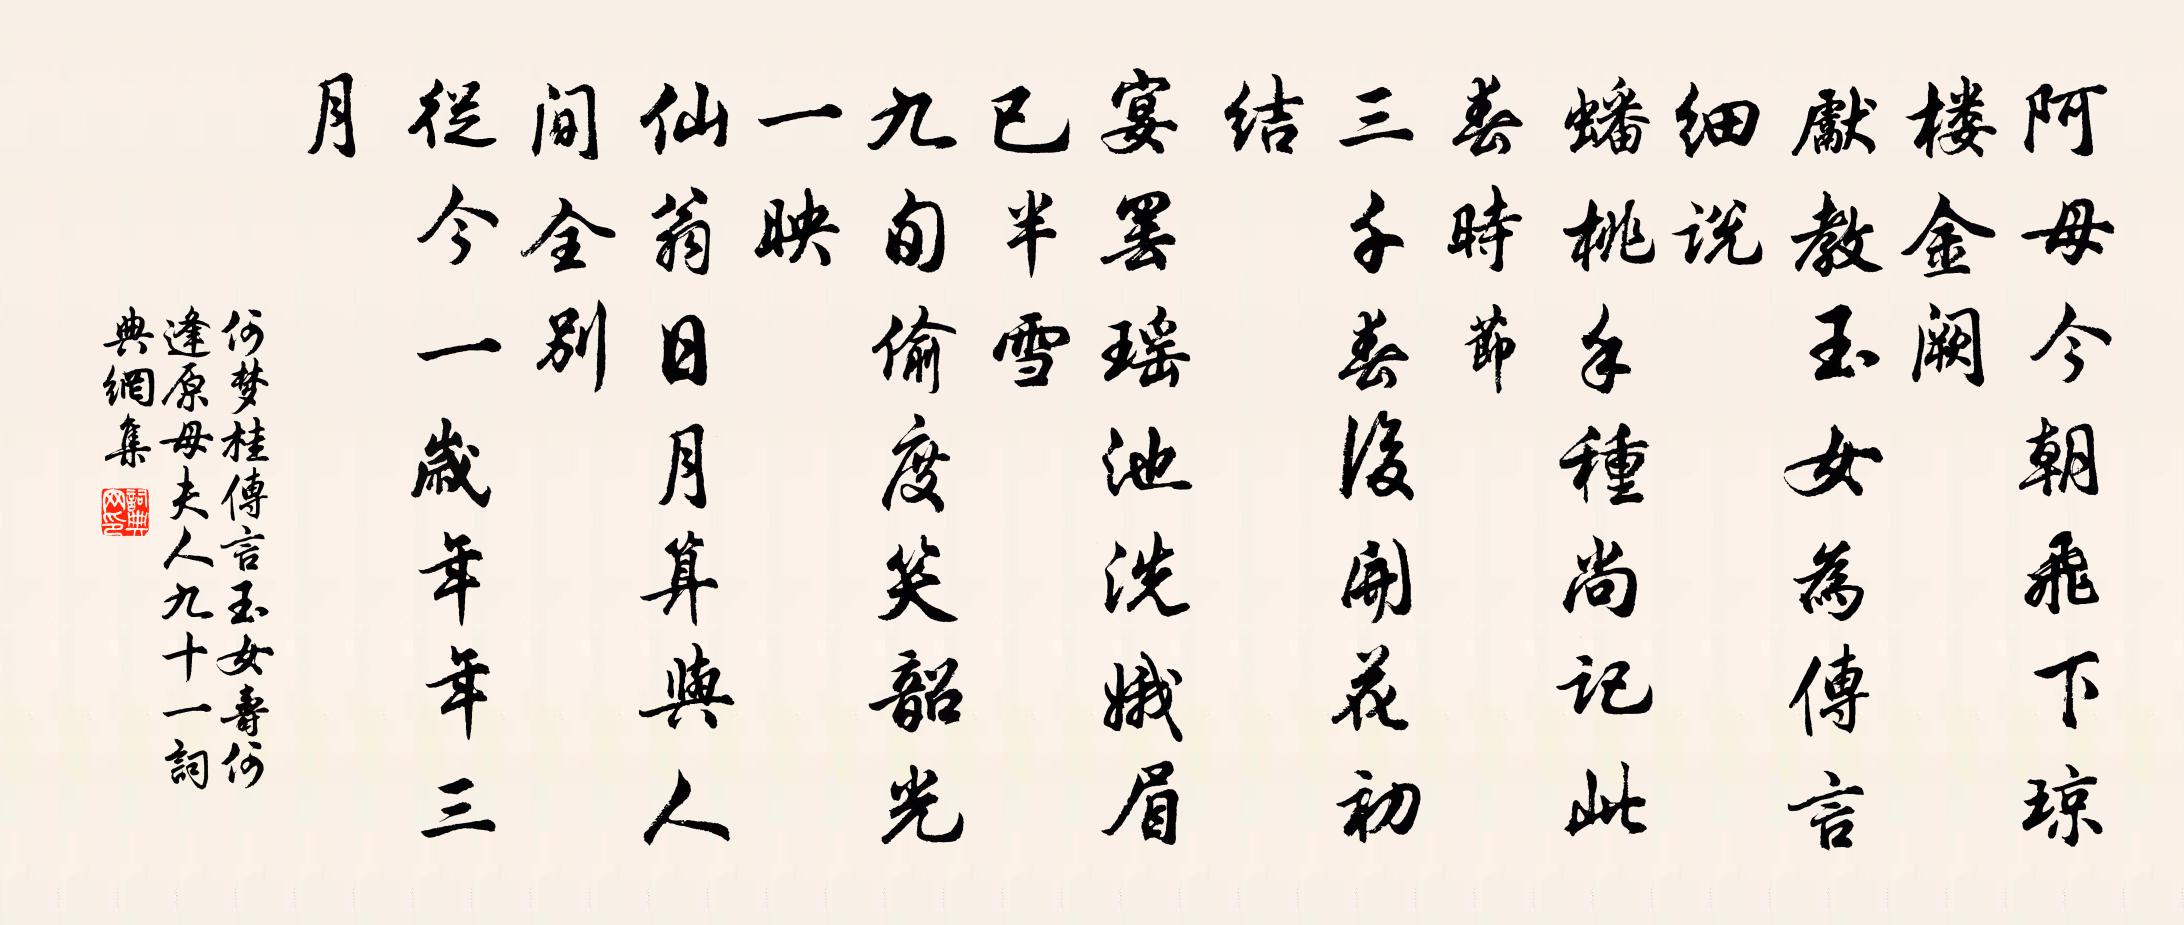 阿母今朝飛下琼
楼金阙
獻教玉女為傳言
细说
蟠桃手種尚记此
春時節
三千春後開花初
结
宴罢瑶池洗娥眉
已半雪
九旬偷度笑韶光
一映
仙翁日月算與人
间全别
從今一歲年年三
月
何梦桂傳言玉女壽何
逢原母夫人九十一詞
典網集
詞典网印